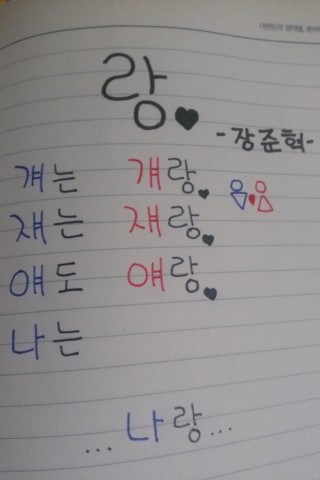 랑♥
-장준혁-
걔는 걔랑♥
쟤는 쟤랑♥
얘도 얘랑♥
나는
...나랑...